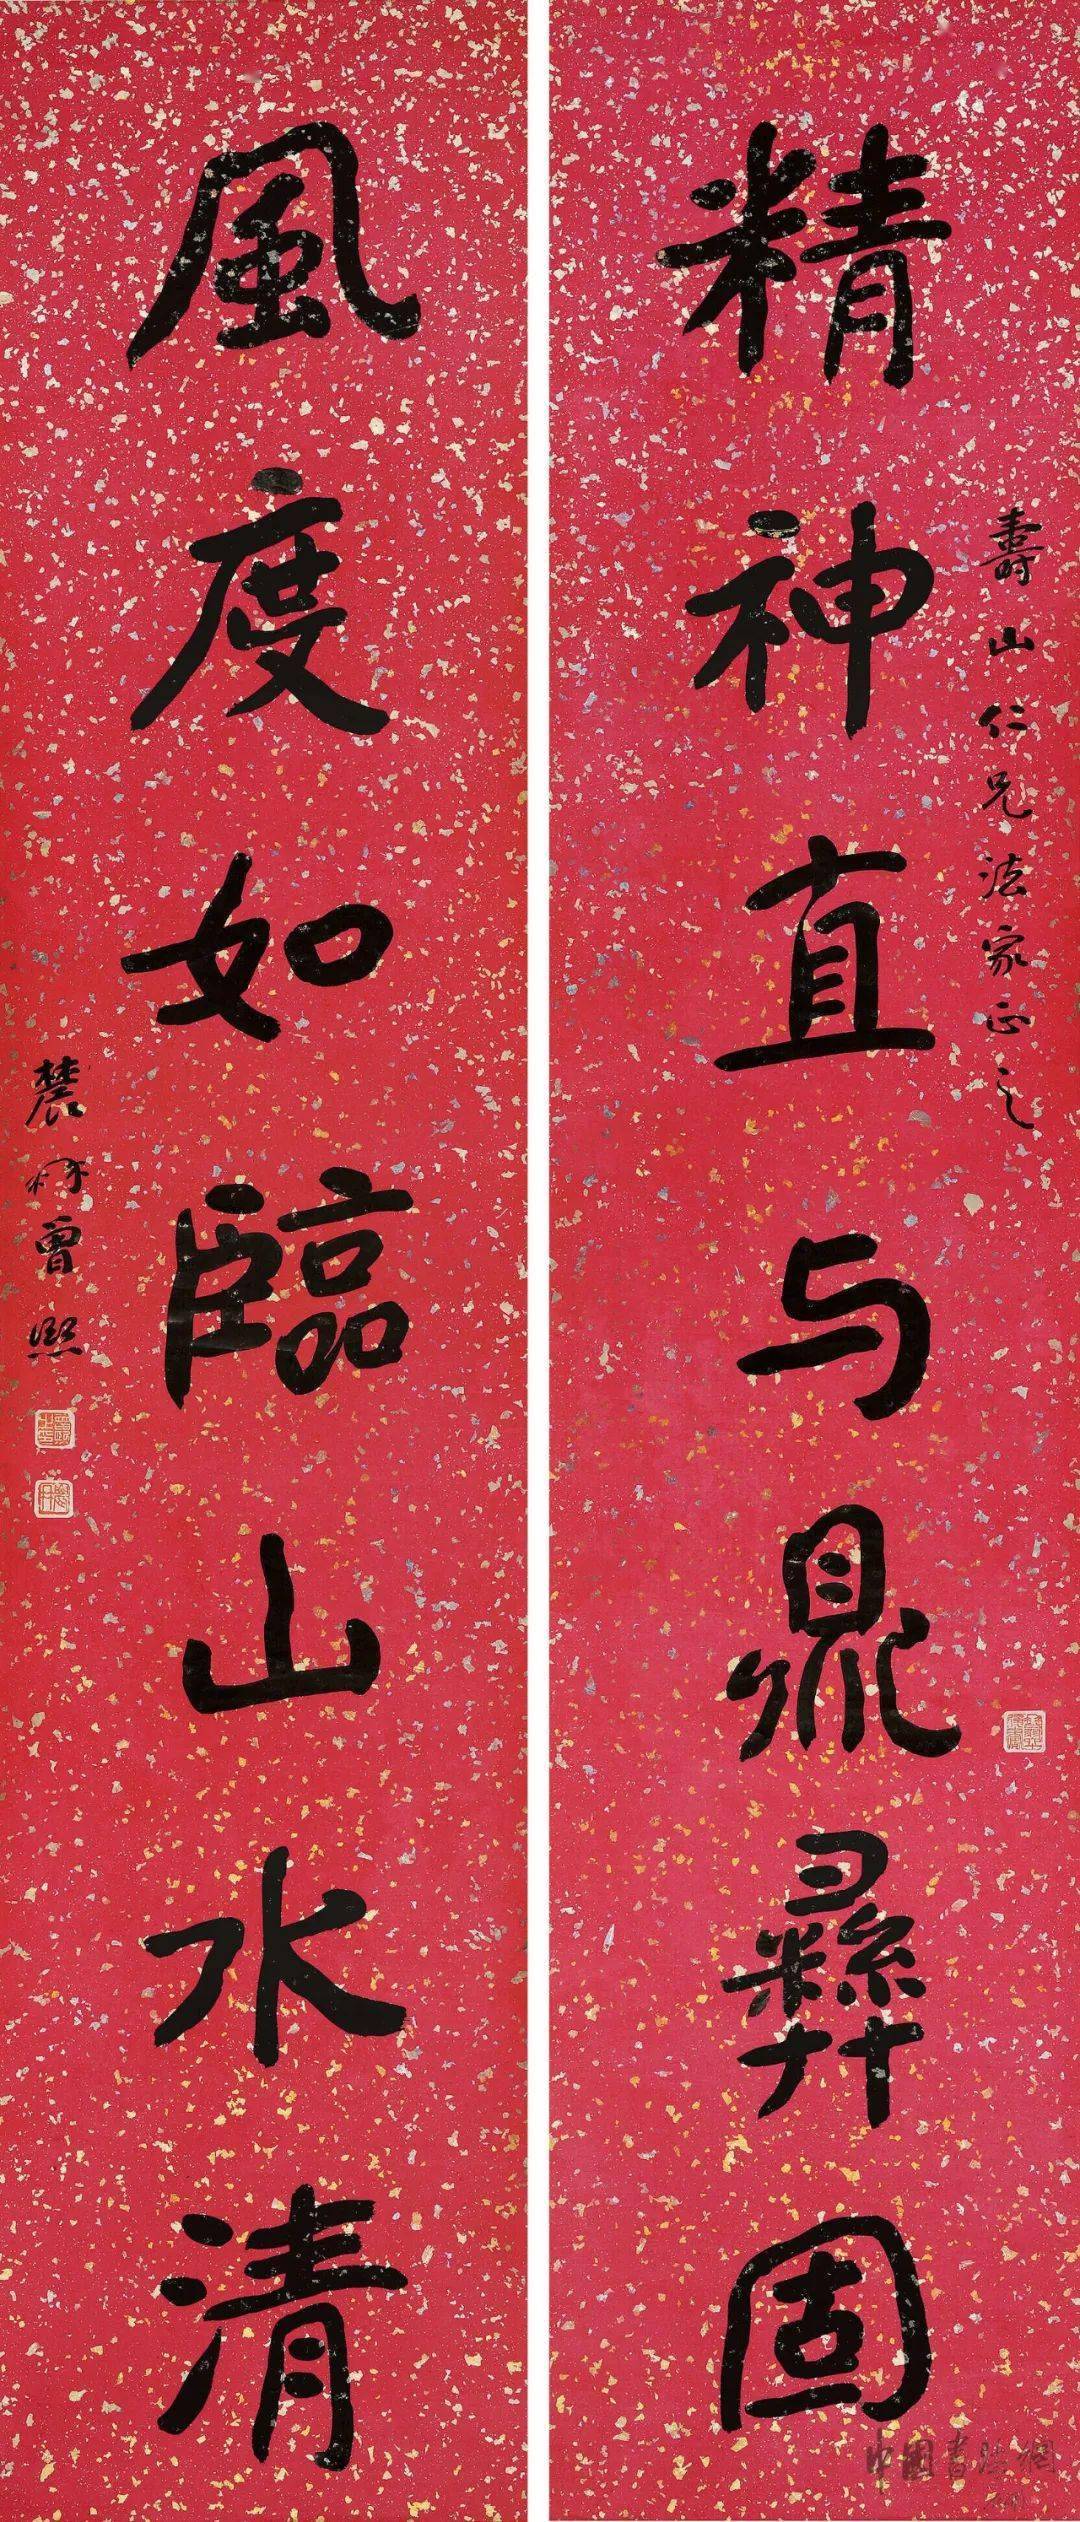 精神直与鼎彝固
壽山仁兄法家正之
風度如臨山水清
農髯曾熙
中國書法網